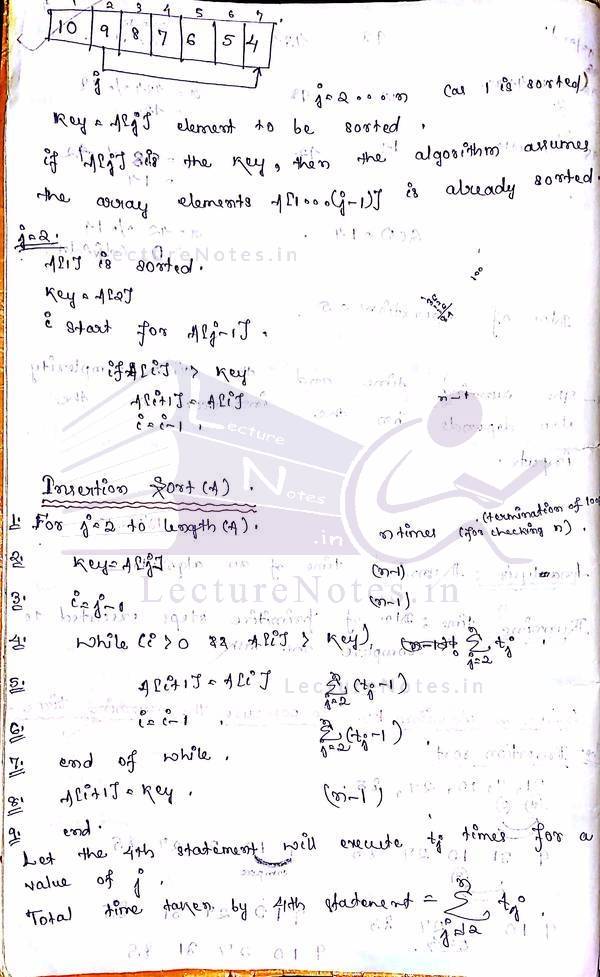 1 2 3 4 5 6 7
10 9 8 7 6 5 4
j
j=2...n (as 1 is sorted)
Key = A[j] element to be sorted.
if A[j] is the key, then the algorithm assumes
the array elements A[1...(j-1)] is already sorted.
j=2.
A[1] is sorted.
Key = A[2]
i start for A[j-1].
if A[i] > key
A[i+1] = A[i]
i=i-1.
n-1
Insertion Sort (A).
1. For j=2 to length(A). n times (termination of loop) (for checking n).
2. Key=A[j] (n-1)
3. i=j-1 (n-1).
4. while (i>0 && A[i] > key), ∑ j=2 n tj
5. A[i+1] = A[i] ∑ j=2 n (tj-1)
6. i=i-1 ∑ j=2 n (tj-1).
7. end of while.
8. A[i+1] = key. (n-1)
9. end.
Let the 4th statement will execute tj times for a
value of j.
Total time taken by 4th statement = ∑ j=2 n tj.
LectureNotes.in
Lecture
Notes
.in
LectureNotes.in
LectureNotes.in